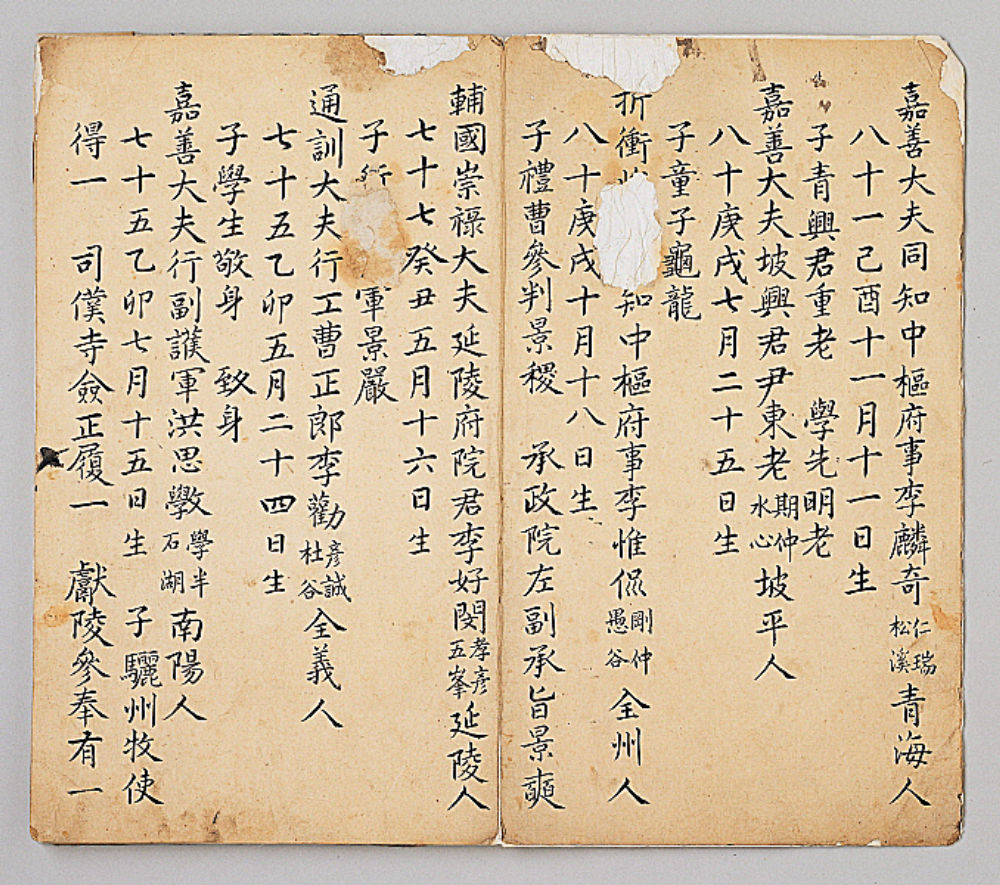 嘉善大夫同知中樞府事李麟奇仁瑞松溪青海人
八十一己酉十一月十一日生
子青興君重老 學先明老
嘉善大夫坡興君尹東老期仲水心坡平人
八十庚戌七月二十五日生
子童子龜龍
折衝 知中樞府事李惟侃剛仲愚谷全州人
八十庚戌十月十八日生
子禮曹參判景稷 承政院左副承旨景奭
輔國崇祿大夫延陵府院君李好閔孝彦五峯延陵人
七十七癸丑五月十六日生
子行 軍景嚴
通訓大夫行工曹正郎李勸彦誠杜谷全義人
七十五乙卯五月二十四日生
子學生敬身 致身
嘉善大夫行副護軍洪思斆學半石湖南陽人
七十五乙卯七月十五日生 子驪州牧使
得一 司僕寺僉正履一 獻陵參奉有一